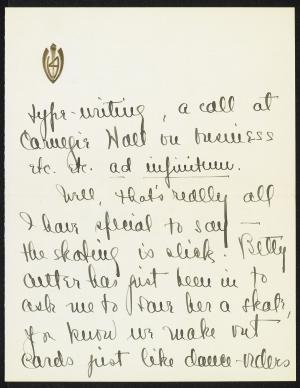 type-writing, a call at
Carnegie Hall on business
etc. etc. ad infinitum.
Well, that's really all
I have special to say —
the skating is slick. Betty
Cutter has just been in to
ask me to save her a skate,
you know we make out
cards just like dance-orders